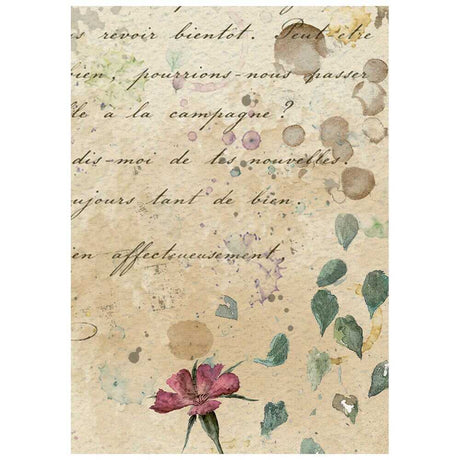 s revoir bientôt. Peut être
bien, pourrions-nous passer
lle à la campagne ?
dis-moi de tes nouvelles.
ujours tant de bien.
en affectueusement,